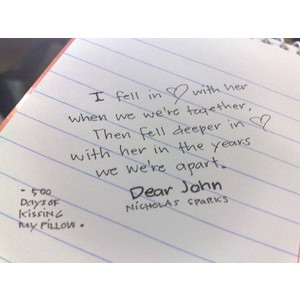 I fell in ♡ with her
when we we're together,
Then fell deeper in ♡
with her in the years
we we're apart.
Dear John
NICHOLAS SPARKS
- 500
DAYS OF
KISSING
MY PILLOW.